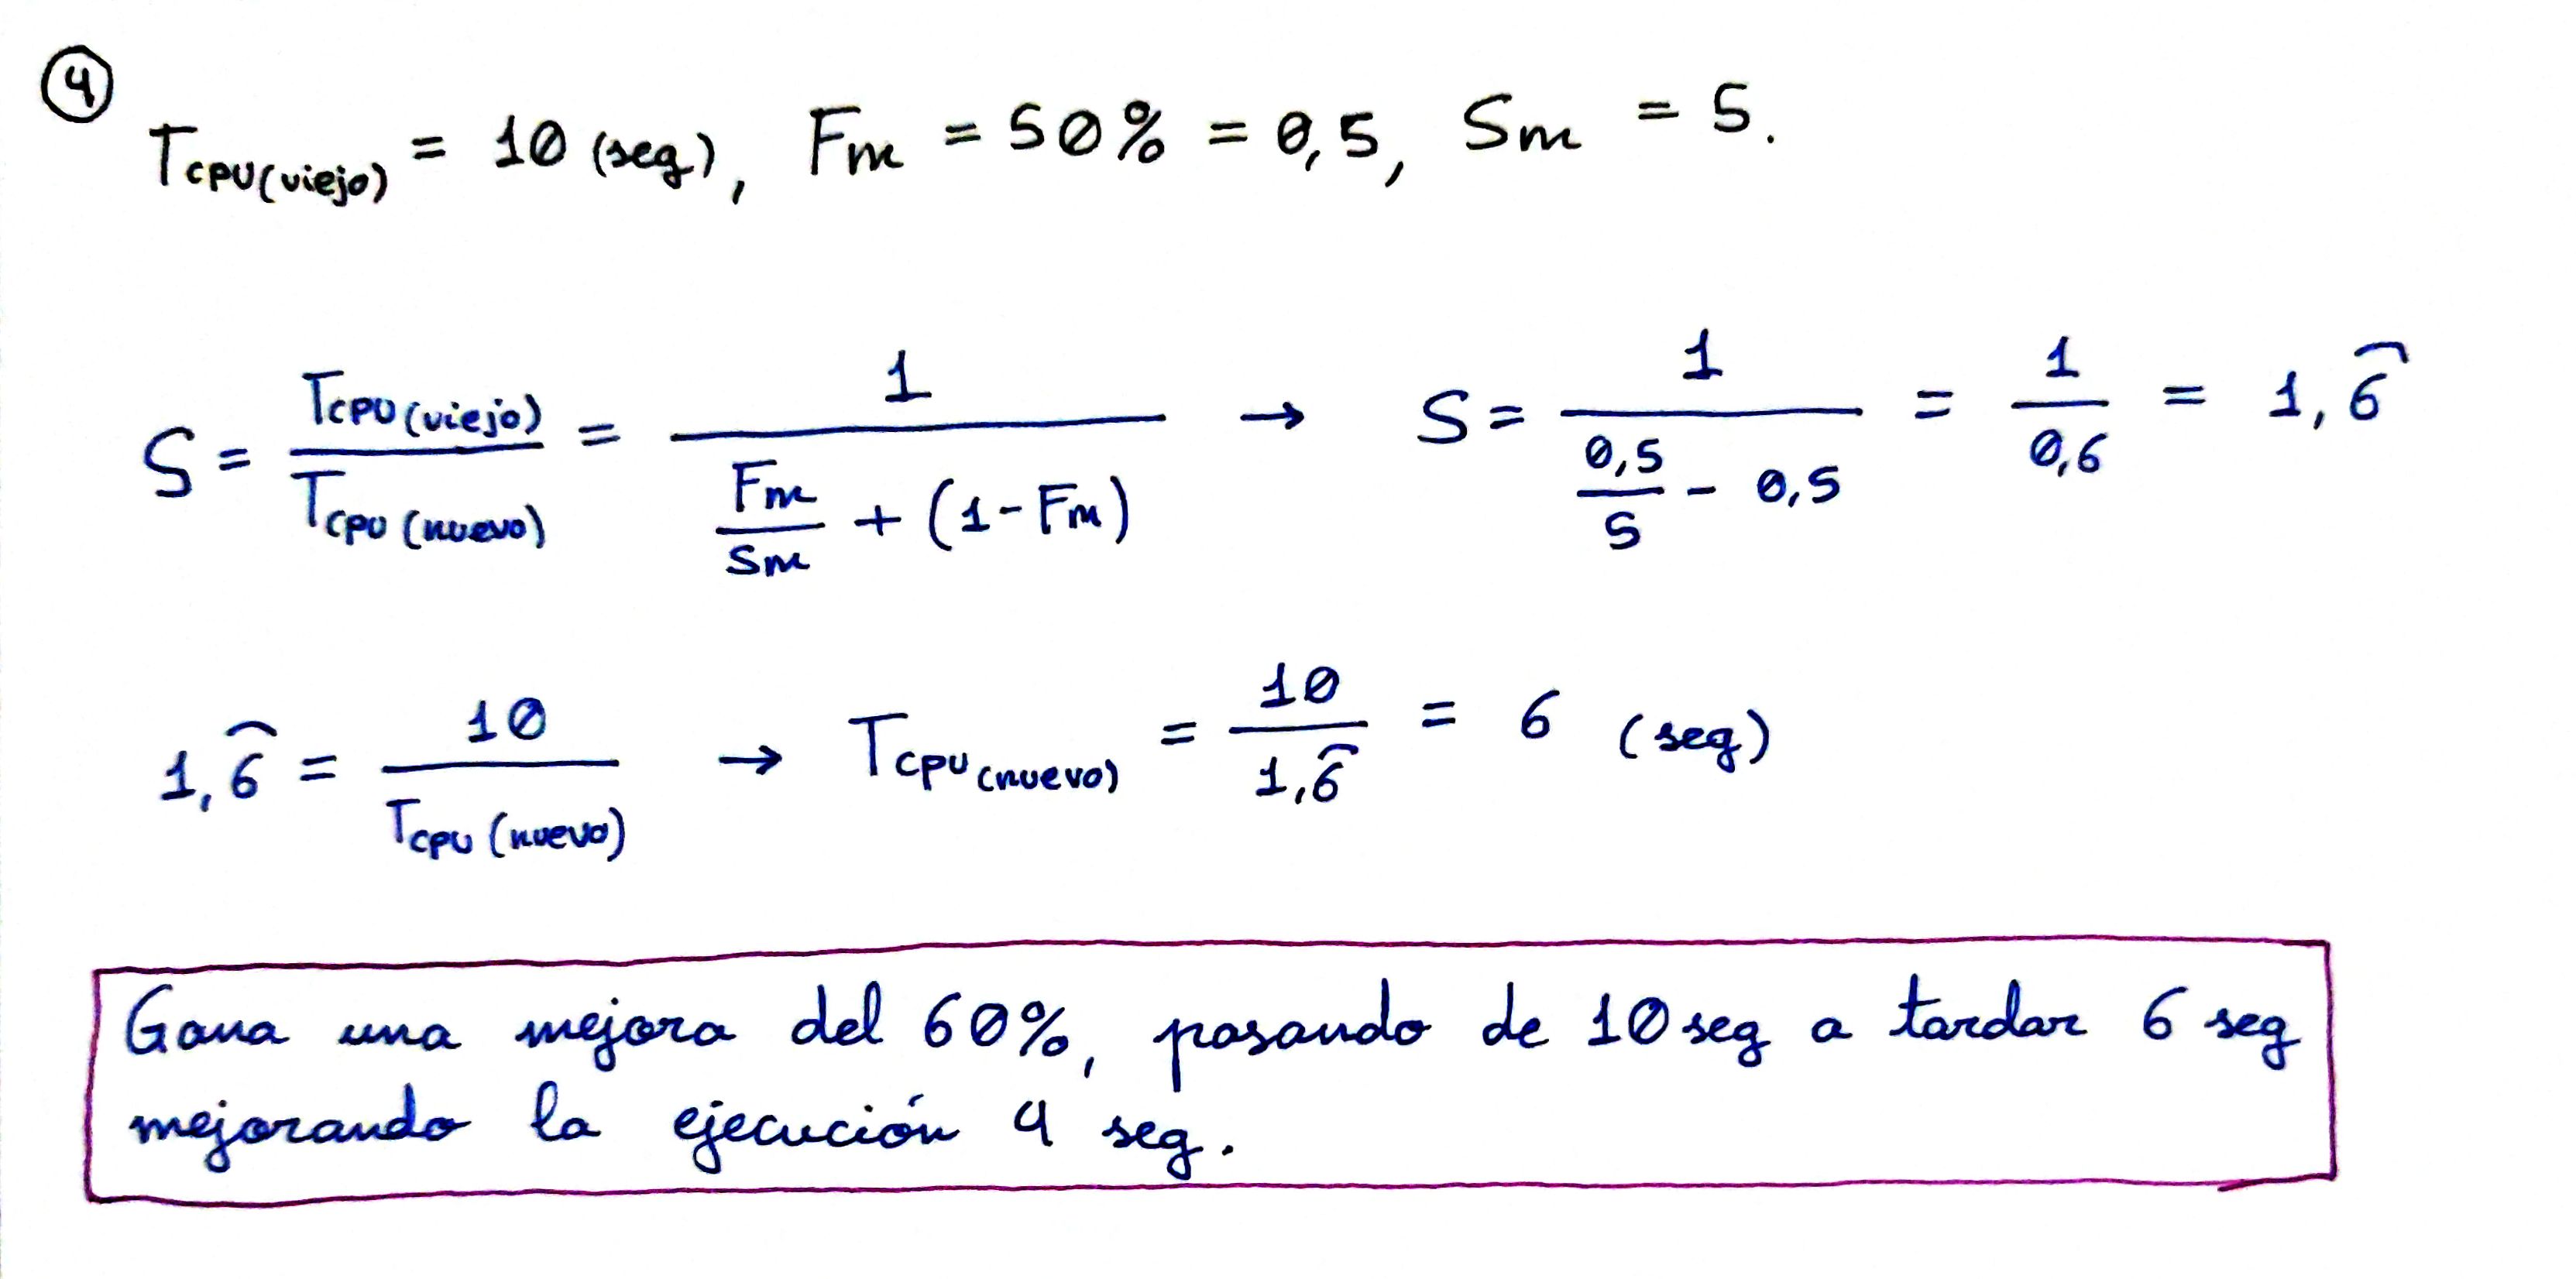 ④
T_CPU(viejo) = 10 (seg), Fm = 50% = 0,5, Sm = 5.
S = T_CPU(viejo) / T_CPU(nuevo) = 1 / (Fm/Sm + (1 - Fm)) → S = 1 / (0,5/5 - 0,5) = 1 / 0,6 = 1,6̑
1,6̑ = 10 / T_CPU(nuevo) → T_CPU(nuevo) = 10 / 1,6̑ = 6 (seg)
Gana una mejora del 60%, pasando de 10 seg a tardar 6 seg
mejorando la ejecución 4 seg.